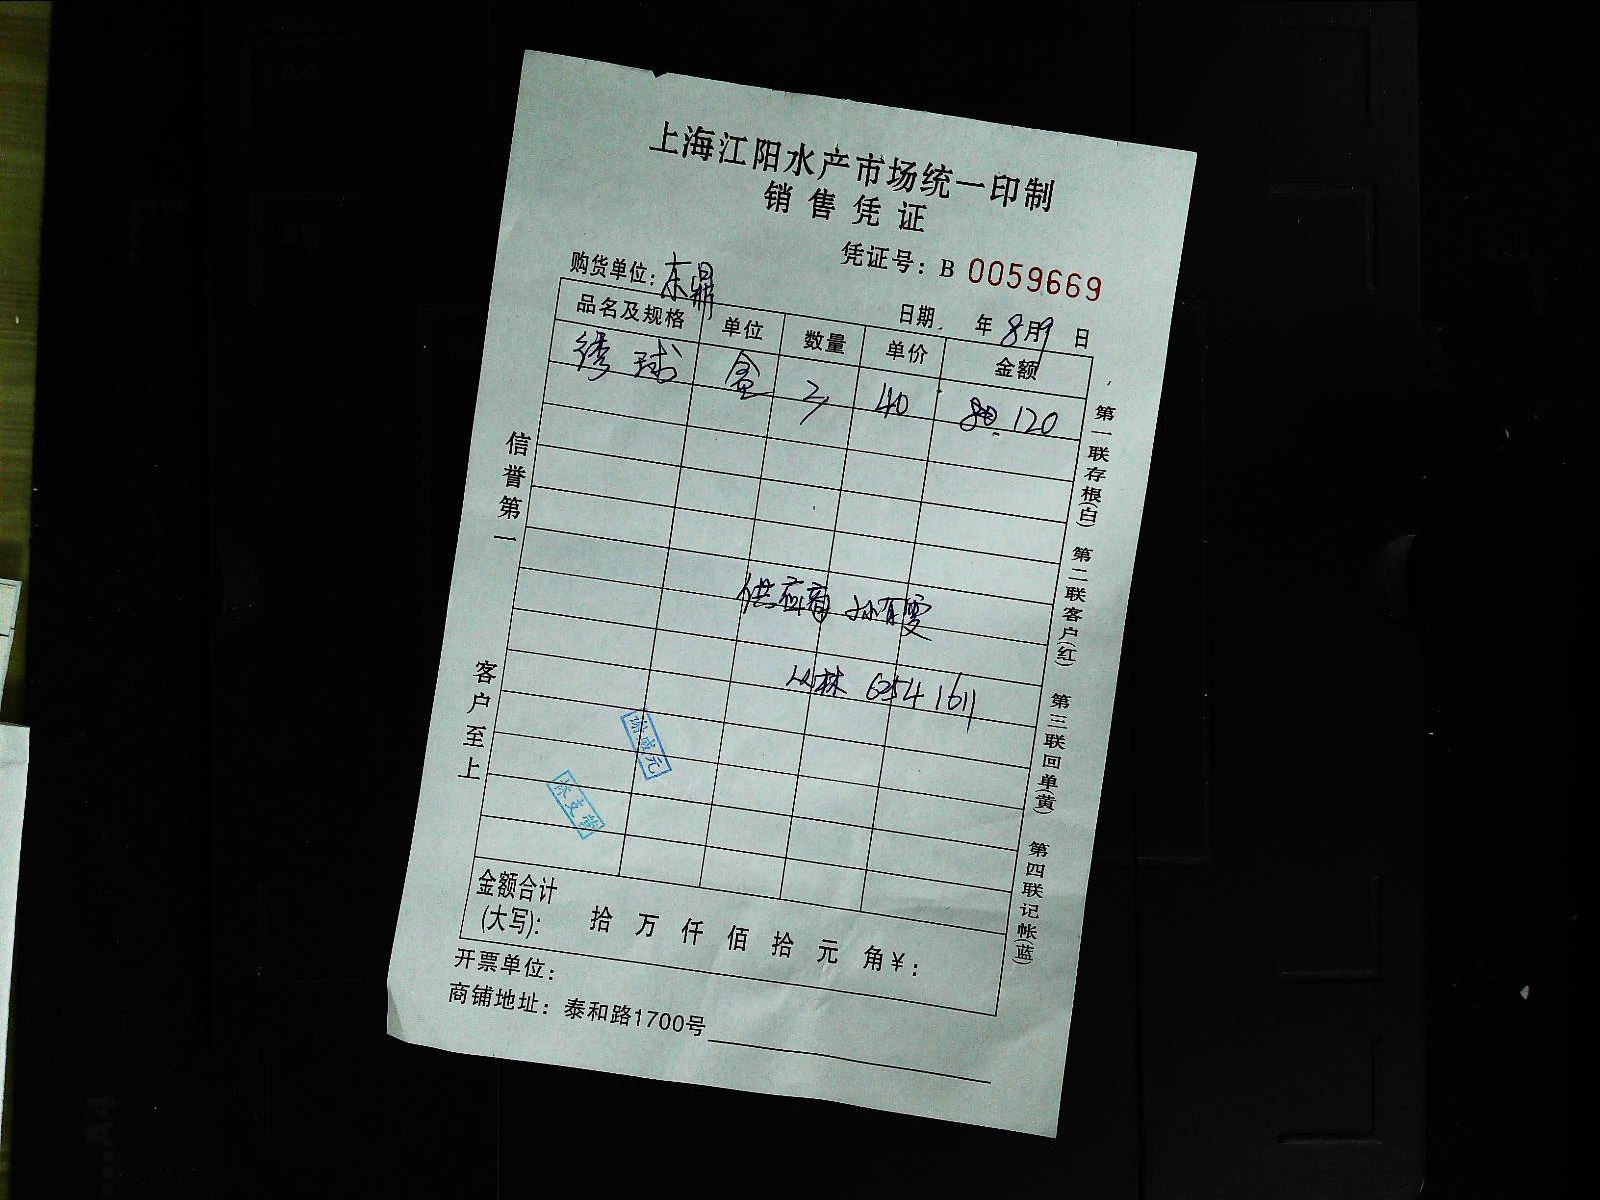 上海江阳水产市场统一印制
销售凭证
凭证号：B 0059669
购货单位：东鼎
日期 年8月9日
品名及规格 单位 数量 单价 金额
绣球 盒 3 40 120
供应商 孙有雯
6254 1611
谢成元
金额合计
(大写): 拾 万 仟 佰 拾 元 角¥:
开票单位：
商铺地址：泰和路1700号
信誉第一
客户至上
第一联存根(白) 第二联客户(红) 第三联回单(黄) 第四联记帐(蓝)